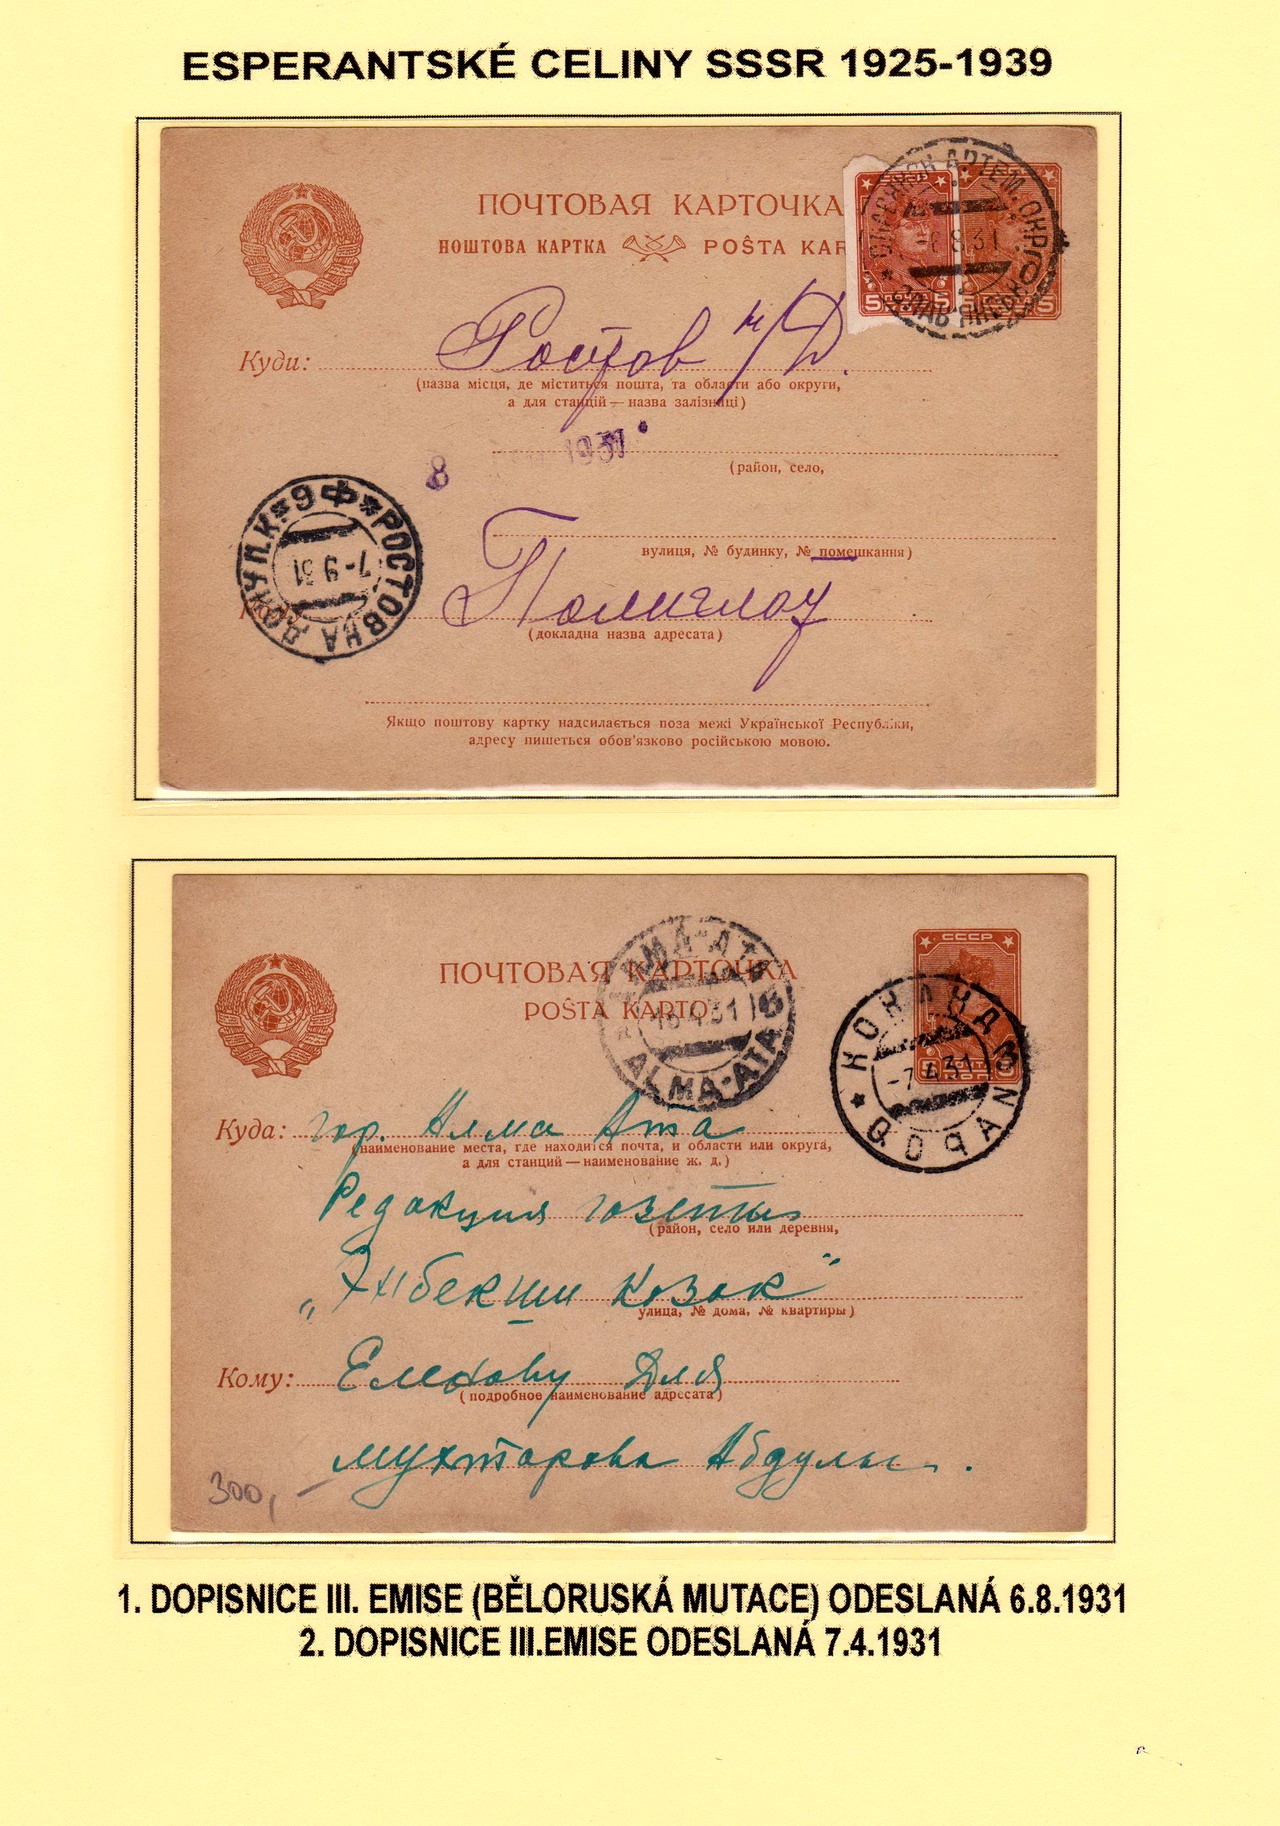 ESPERANTSKÉ CELINY SSSR 1925-1939
ПОЧТОВАЯ КАРТОЧКА
ПОШТОВА КАРТКА POŜTA KAR
СССР
5 5
8 31
Куди: Ростов н/Д.
(назва місця, де міститься пошта, та области або округи,
а для станцій — назва залізниці)
8 1931
(район, село,
вулиця, № будинку, № помешкання)
РОСТОВ НА ДОНУ П.К. 9 Ф
7-9 31
Полиглот
(докладна назва адресата)
Якщо поштову картку надсилається поза межі Української Республіки,
адресу пишеться обов'язково російською мовою.
ПОЧТОВАЯ КАРТОЧКА
POŜTA KARTO
АЛМА-АТА
16.4.31
ALMA-ATA
СССР
КОКАНД
-7.4.31
QOQAN
Куда: гор. Алма Ата
(наименование места, где находится почта, и области или округа,
а для станций — наименование ж. д.)
Редакция газеты
(район, село или деревня,
улица, № дома, № квартиры)
Кому: Для
(подробное наименование адресата)
Мухтарова
300,-
1. DOPISNICE III. EMISE (BĚLORUSKÁ MUTACE) ODESLANÁ 6.8.1931
2. DOPISNICE III.EMISE ODESLANÁ 7.4.1931